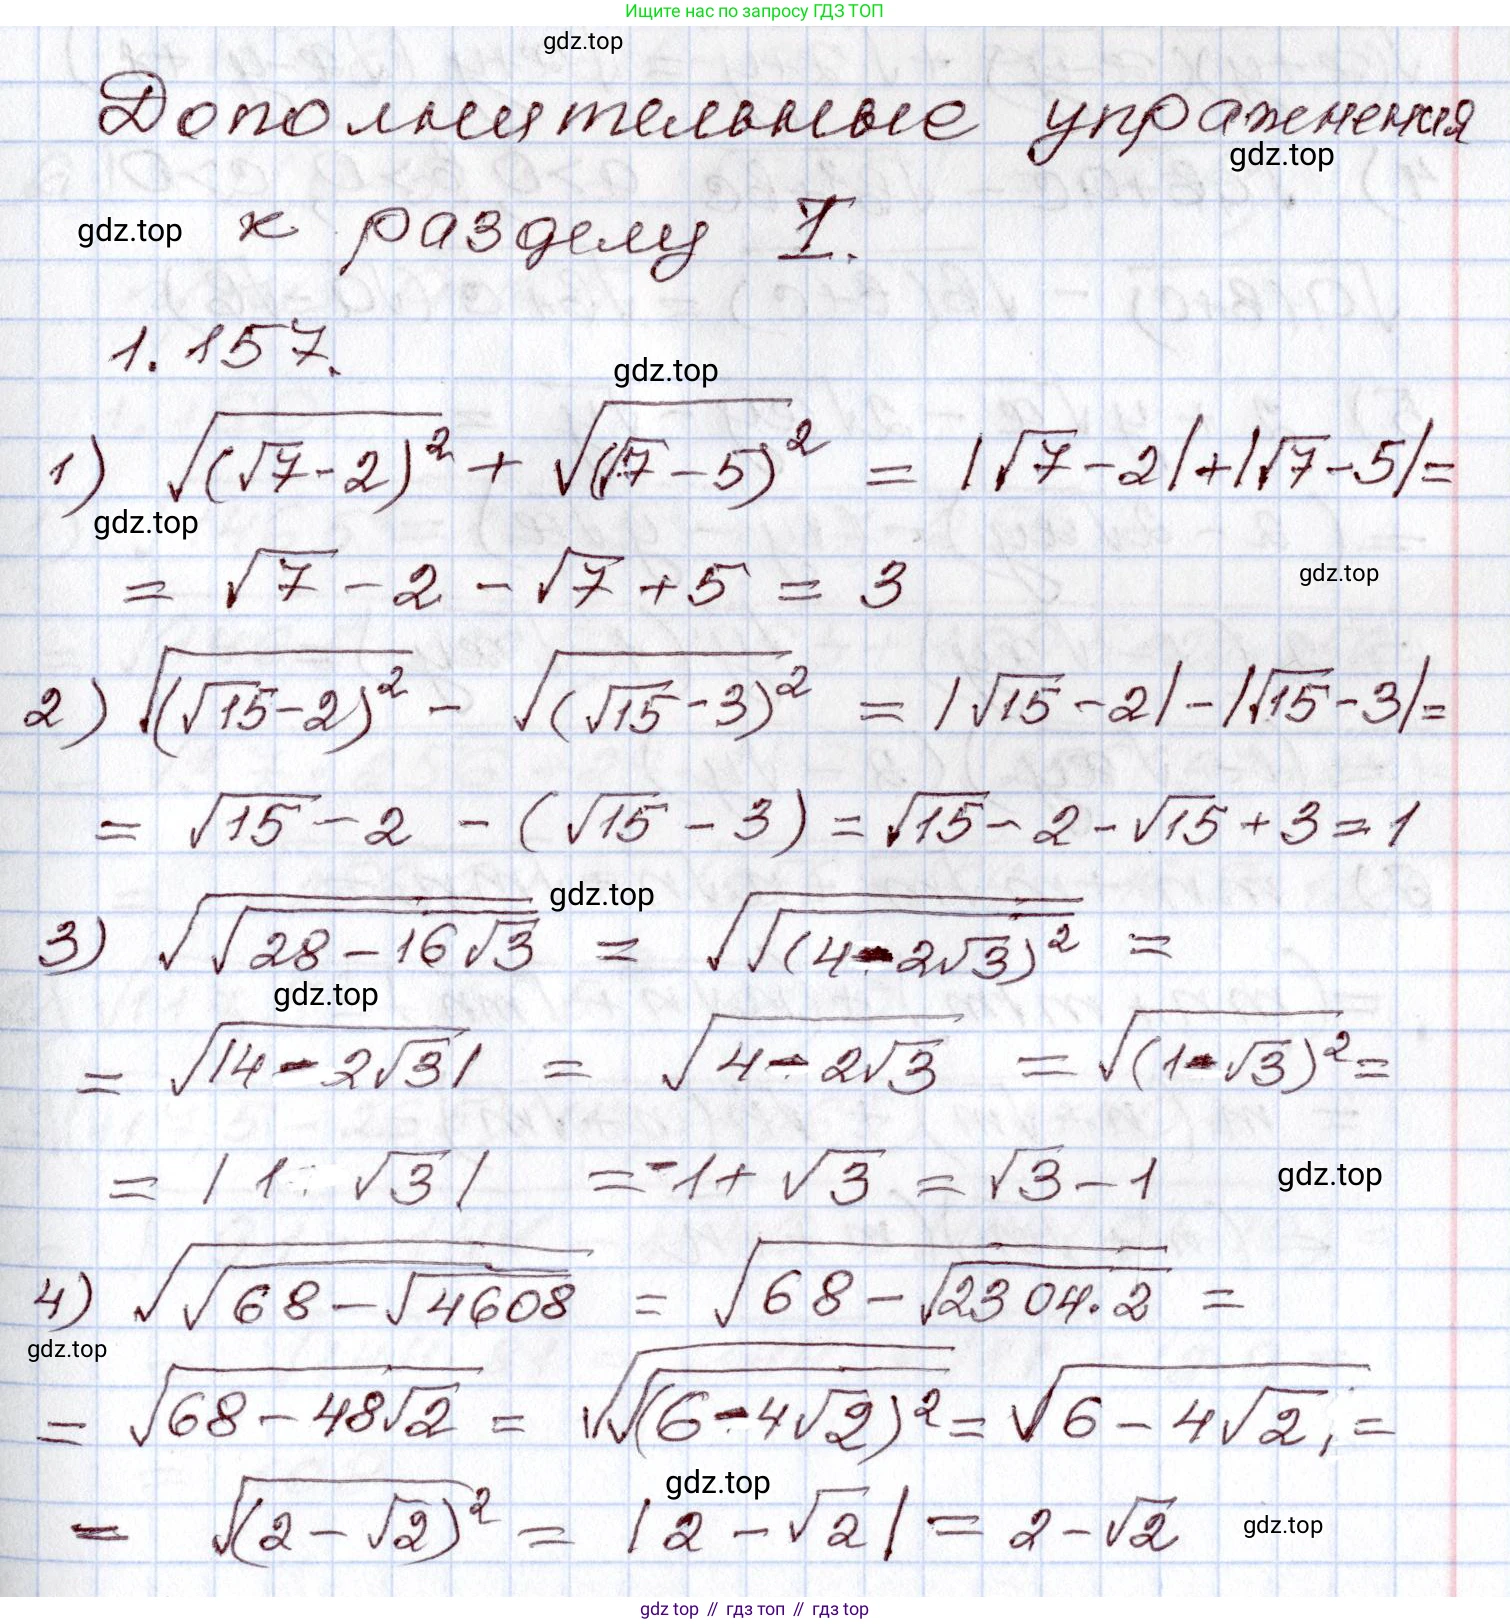 Ищите нас по запросу ГДЗ ТОП
gdz.top
Дополнительные упражнения
gdz.top
gdz.top к разделу I.
1.157.
gdz.top
1) √(√7-2)² + √(√7-5)² = |√7-2|+|√7-5|=
gdz.top
= √7-2-√7+5 = 3
gdz.top
2) √(√15-2)² - √(√15-3)² = |√15-2|-|√15-3|=
= √15-2 -(√15-3) = √15-2-√15+3=1
gdz.top
3) √√28-16√3 = √√(4-2√3)² =
gdz.top
= √|4-2√3| = √4-2√3 = √(1-√3)² =
= |1 √3| = -1+√3 = √3-1
gdz.top
4) √√68-√4608 = √68-√2304·2 =
gdz.top
= √68-48√2 = √√(6-4√2)² = √6-4√2, =
gdz.top
= √(2-√2)² = |2-√2| = 2-√2
gdz.top
gdz top // гдз топ // гдз top